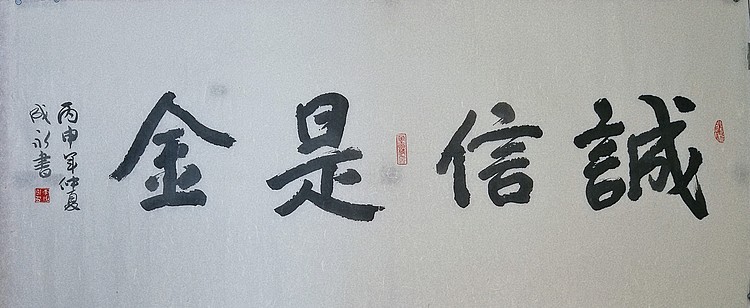 誠信是金
丙申年仲夏
成永書